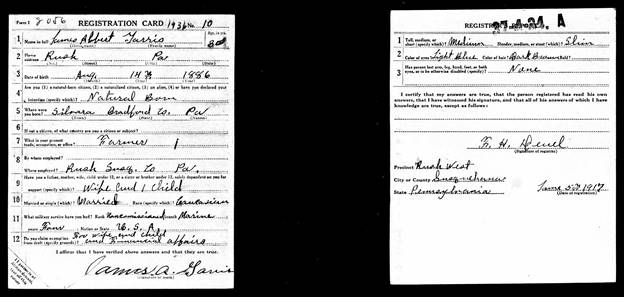 Form 1
REGISTRATION CARD
1936 No. 10
1 Name in full James Abbert Farris
Age, in yrs. 30
2 Home address Rush Pa
3 Date of birth Aug. 14 1886
4 Are you (1) a natural-born citizen, (2) a naturalized citizen, (3) an alien, (4) or have you declared your
intention (specify which)? Natural Born
5 Where were you born? Silvara Bradford Co. Pa
6 If not a citizen, of what country are you a citizen or subject?
7 What is your present trade, occupation, or office? Farmer
8 By whom employed?
Where employed? Rush Susq. Co Pa.
9 Have you a father, mother, wife, child under 12, or a sister or brother under 12, solely dependent on you for
support (specify which)? Wife and 1 Child
10 Married or single (which)? Married Race (specify which)? Caucasian
11 What military service have you had? Rank Noncomissioned branch Marine
years Four Nation or State U.S.A
12 Do you claim exemption from draft (specify grounds)? For wife and child
and Financial affairs
I affirm that I have verified above answers and that they are true.
James A.
REGISTRAR'S REPORT
A
1 Tall, medium, or short (specify which)? Medium Slender, medium, or stout (which)? Slim
2 Color of eyes? Light Blue Color of hair? Dark Brown Bald?
3 Has person lost arm, leg, hand, foot, or both eyes, or is he otherwise disabled (specify)? None
I certify that my answers are true, that the person registered has read his own
answers, that I have witnessed his signature, and that all of his answers of which I have
knowledge are true, except as follows:
F. H. Deuel
(Signature of registrar)
Precinct Rush West
City or County Susquehanna
State Pennsylvania
June 5th 1917
(Date of registration)